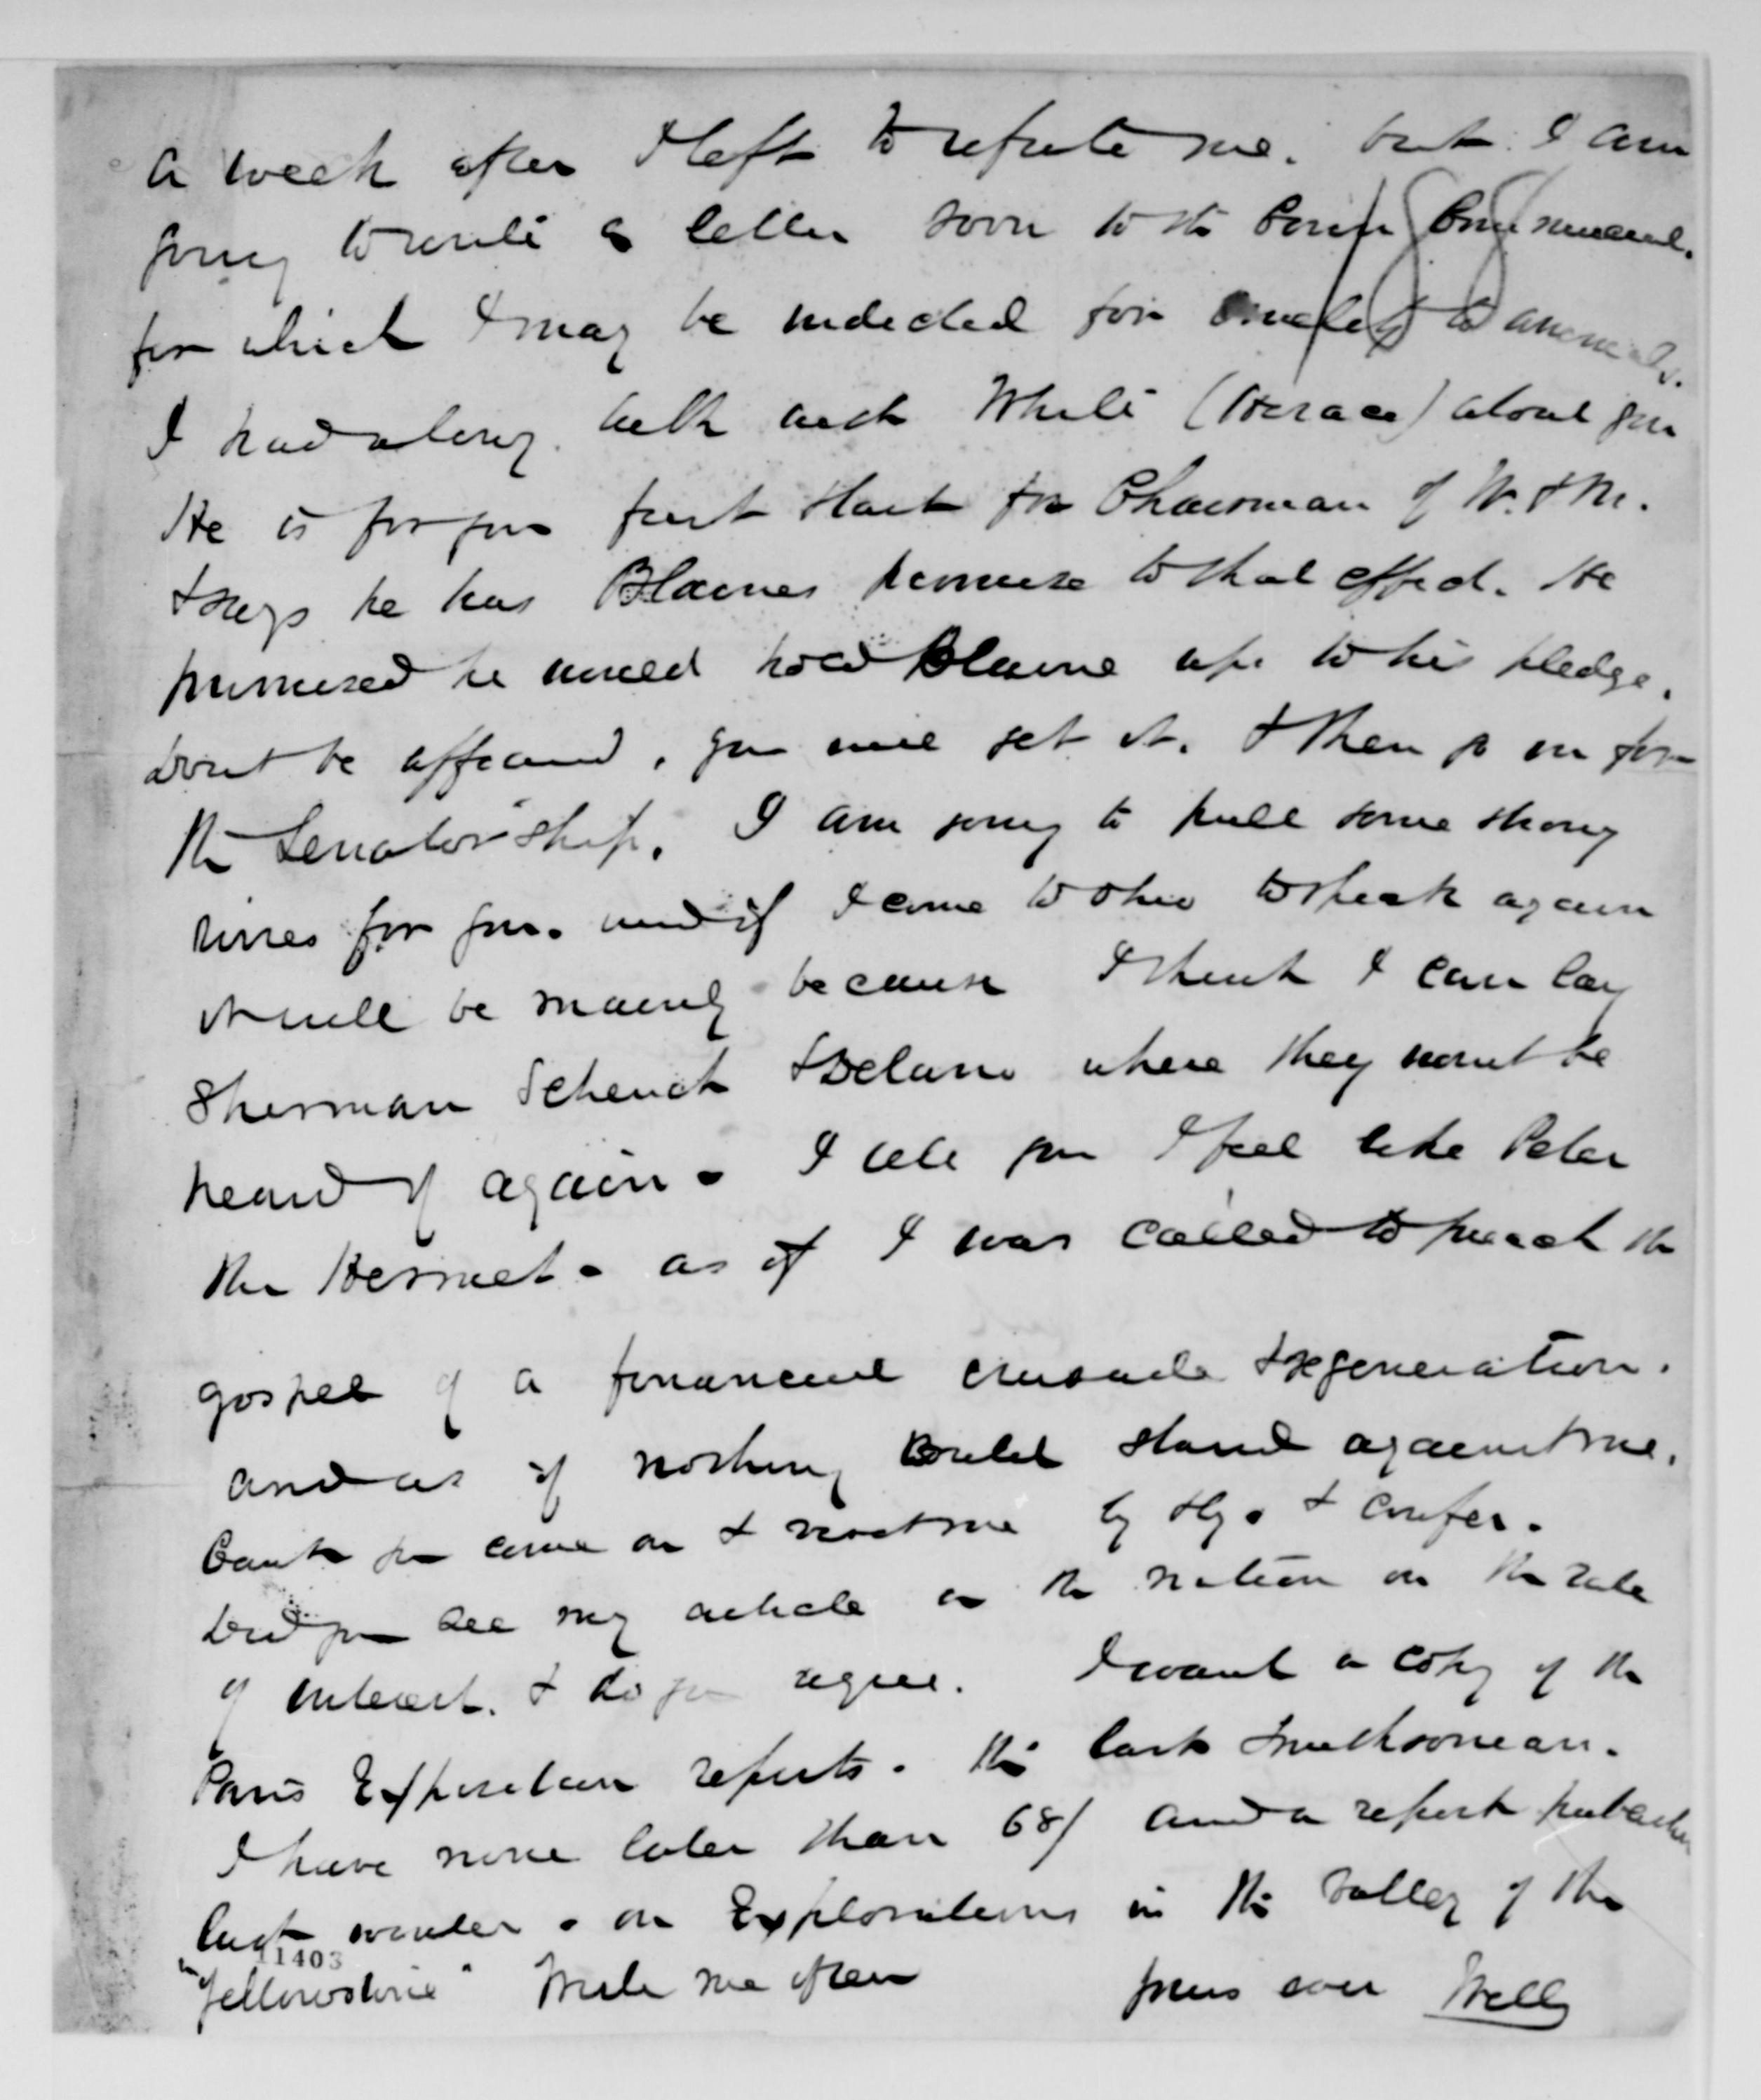 a week after I left to refute me. but I am
going to write a letter soon to the Cincin Commercial.
for which I may be indicted for cruelty to animals.
I had a long talk with White (Horace) about you
He is for you first start for Chairman of W. & M.
& says he has Blaines promise to that effect. He
promised he would hold Blaine up to his pledge.
Dont be affraid, you will get it. & then go on for
the Senator ship. I am going to pull some strong
wires for you. and if I come to Ohio to speak again
it will be mainly because I think I can lay
Sherman Schenck & Delano where they wont be
heard of again - I tell you I feel like Peter
the Hermit - as if I was called to preach the
gospel of a financial crusade & regeneration.
and as if nothing could stand against me.
Cant you come on & visit me by & by. & confer.
Did you see my article in the nation on the rate
of interest. & do you agree. I want a copy of the
Paris Exposition reports. the last Smithsonian.
I have none later than 68/ and a report published
last winter - on Explorations in the valley of the
"Yellowstone" Write me often yours ever Wells
11403